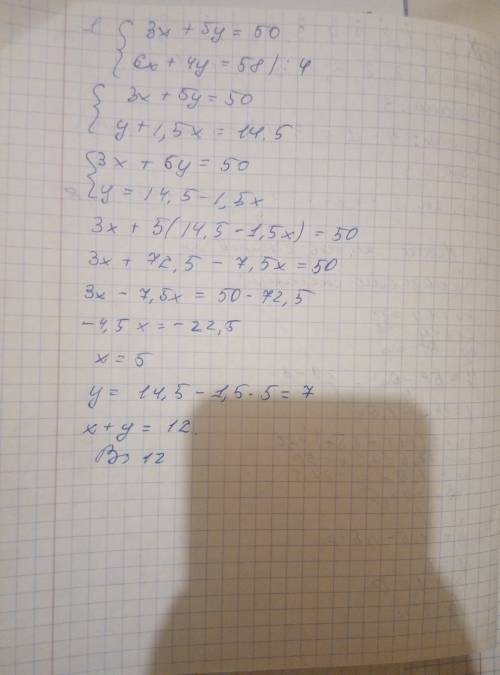 1 { 3x + 5y = 50
6x + 4y = 58 | : 4
{ 3x + 5y = 50
y + 1,5x = 14.5
{ 3x + 5y = 50
y = 14,5 - 1,5x
3x + 5(14,5 - 1,5x) = 50
3x + 72,5 - 7,5x = 50
3x - 7,5x = 50 - 72,5
-4,5x = -22,5
x = 5
y = 14,5 - 1,5 · 5 = 7
x + y = 12.
В) 12